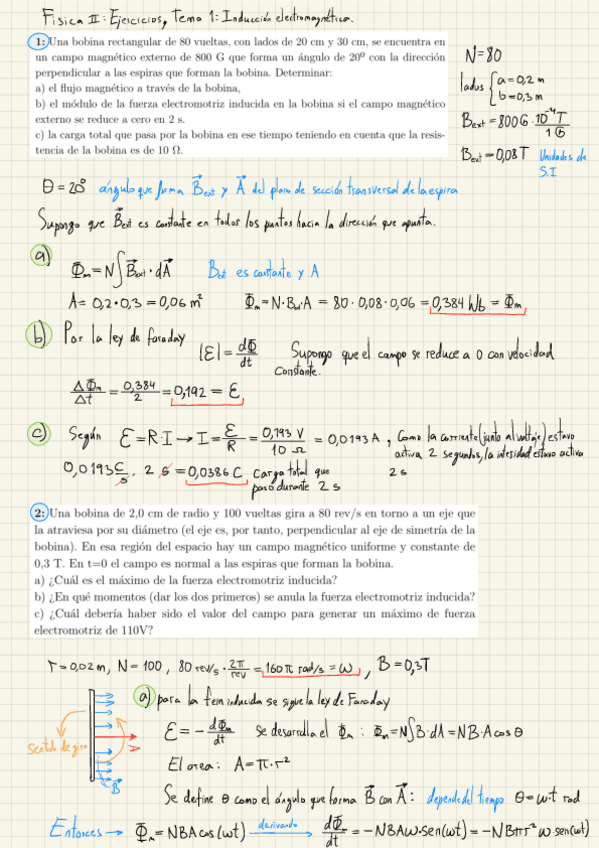 Física II: Ejercicios, Tema 1: Inducción electromagnética.
1: Una bobina rectangular de 80 vueltas, con lados de 20 cm y 30 cm, se encuentra en
un campo magnético externo de 800 G que forma un ángulo de 20º con la dirección
perpendicular a las espiras que forman la bobina. Determinar:
a) el flujo magnético a través de la bobina,
b) el módulo de la fuerza electromotriz inducida en la bobina si el campo magnético
externo se reduce a cero en 2 s.
c) la carga total que pasa por la bobina en ese tiempo teniendo en cuenta que la resis-
tencia de la bobina es de 10 Ω.
N=80
lados { a=0,2 m
b=0,3 m
Bext = 800G · 10⁻⁴T / 1G
Bext = 0,08T Unidades de
S.I
θ = 20º ángulo que forma B⃗ext y A⃗ del plano de sección transversal de la espira
Supongo que B⃗ext es constante en todos los puntos hacia la dirección que apunta.
a)
Φm = N∫B⃗ext · dA⃗ Bext es constante y A
A = 0,2 · 0,3 = 0,06 m² Φm = N·Bext·A = 80 · 0,08 · 0,06 = 0,384 Wb = Φm
b) Por la ley de faraday
|ε| = dΦ/dt Supongo que el campo se reduce a 0 con velocidad
constante.
ΔΦm/Δt = 0,384/2 = 0,192 = ε
c) Según ε = R·I → I = ε/R = 0,193 V / 10 Ω = 0,0193 A , Como la corriente (junto al voltaje) estuvo
activa 2 segundos, la intesidad estuvo activa
2 s
0,0193 C/s · 2 s = 0,0386 C Carga total que
pasó durante 2 s
2: Una bobina de 2,0 cm de radio y 100 vueltas gira a 80 rev/s en torno a un eje que
la atraviesa por su diámetro (el eje es, por tanto, perpendicular al eje de simetría de la
bobina). En esa región del espacio hay un campo magnético uniforme y constante de
0,3 T. En t=0 el campo es normal a las espiras que forman la bobina.
a) ¿Cuál es el máximo de la fuerza electromotriz inducida?
b) ¿En qué momentos (dar los dos primeros) se anula la fuerza electromotriz inducida?
c) ¿Cuál debería haber sido el valor del campo para generar un máximo de fuerza
electromotriz de 110V?
r = 0,02 m, N = 100 , 80 rev/s · 2π/rev = 160π rad/s = ω , B = 0,3T
a) para la fem inducida se sigue la ley de Faraday
ε = - dΦm/dt se desarrolla el Φm : Φm = N∫B·dA = NB·A cos θ
sentido de giro
A⃗
B⃗
El area: A = π·r²
Se define θ como el ángulo que forma B⃗ con A⃗: depende del tiempo θ = ω·t rad
Entonces → Φm = NBA cos(ωt) derivando → dΦm/dt = -NBAω·sen(ωt) = -NBπr² ω·sen(ωt)